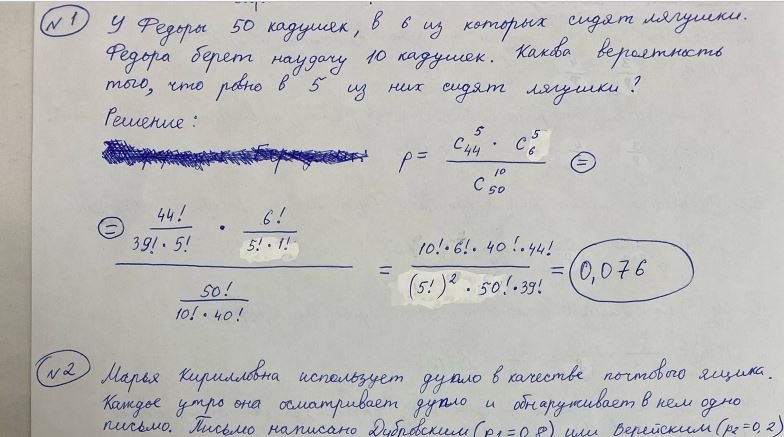 №1 У Федоры 50 кадушек, в 6 из которых сидят лягушки.
Федора берет наудачу 10 кадушек. Какова вероятность
того, что ровно в 5 из них сидят лягушки?
Решение:
p = (C_44^5 · C_6^5) / C_50^10 =
= (44! / (39! · 5!) · 6! / (5! · 1!)) / (50! / (10! · 40!)) = (10! · 6! · 40! · 44!) / ((5!)^2 · 50! · 39!) = 0,076
№2 Марья Кирилловна использует дупло в качестве почтового ящика.
Каждое утро она осматривает дупло и обнаруживает в нем одно
письмо. Письмо написано Дубровским (p1=0,8) или Верейским (p2=0,2)